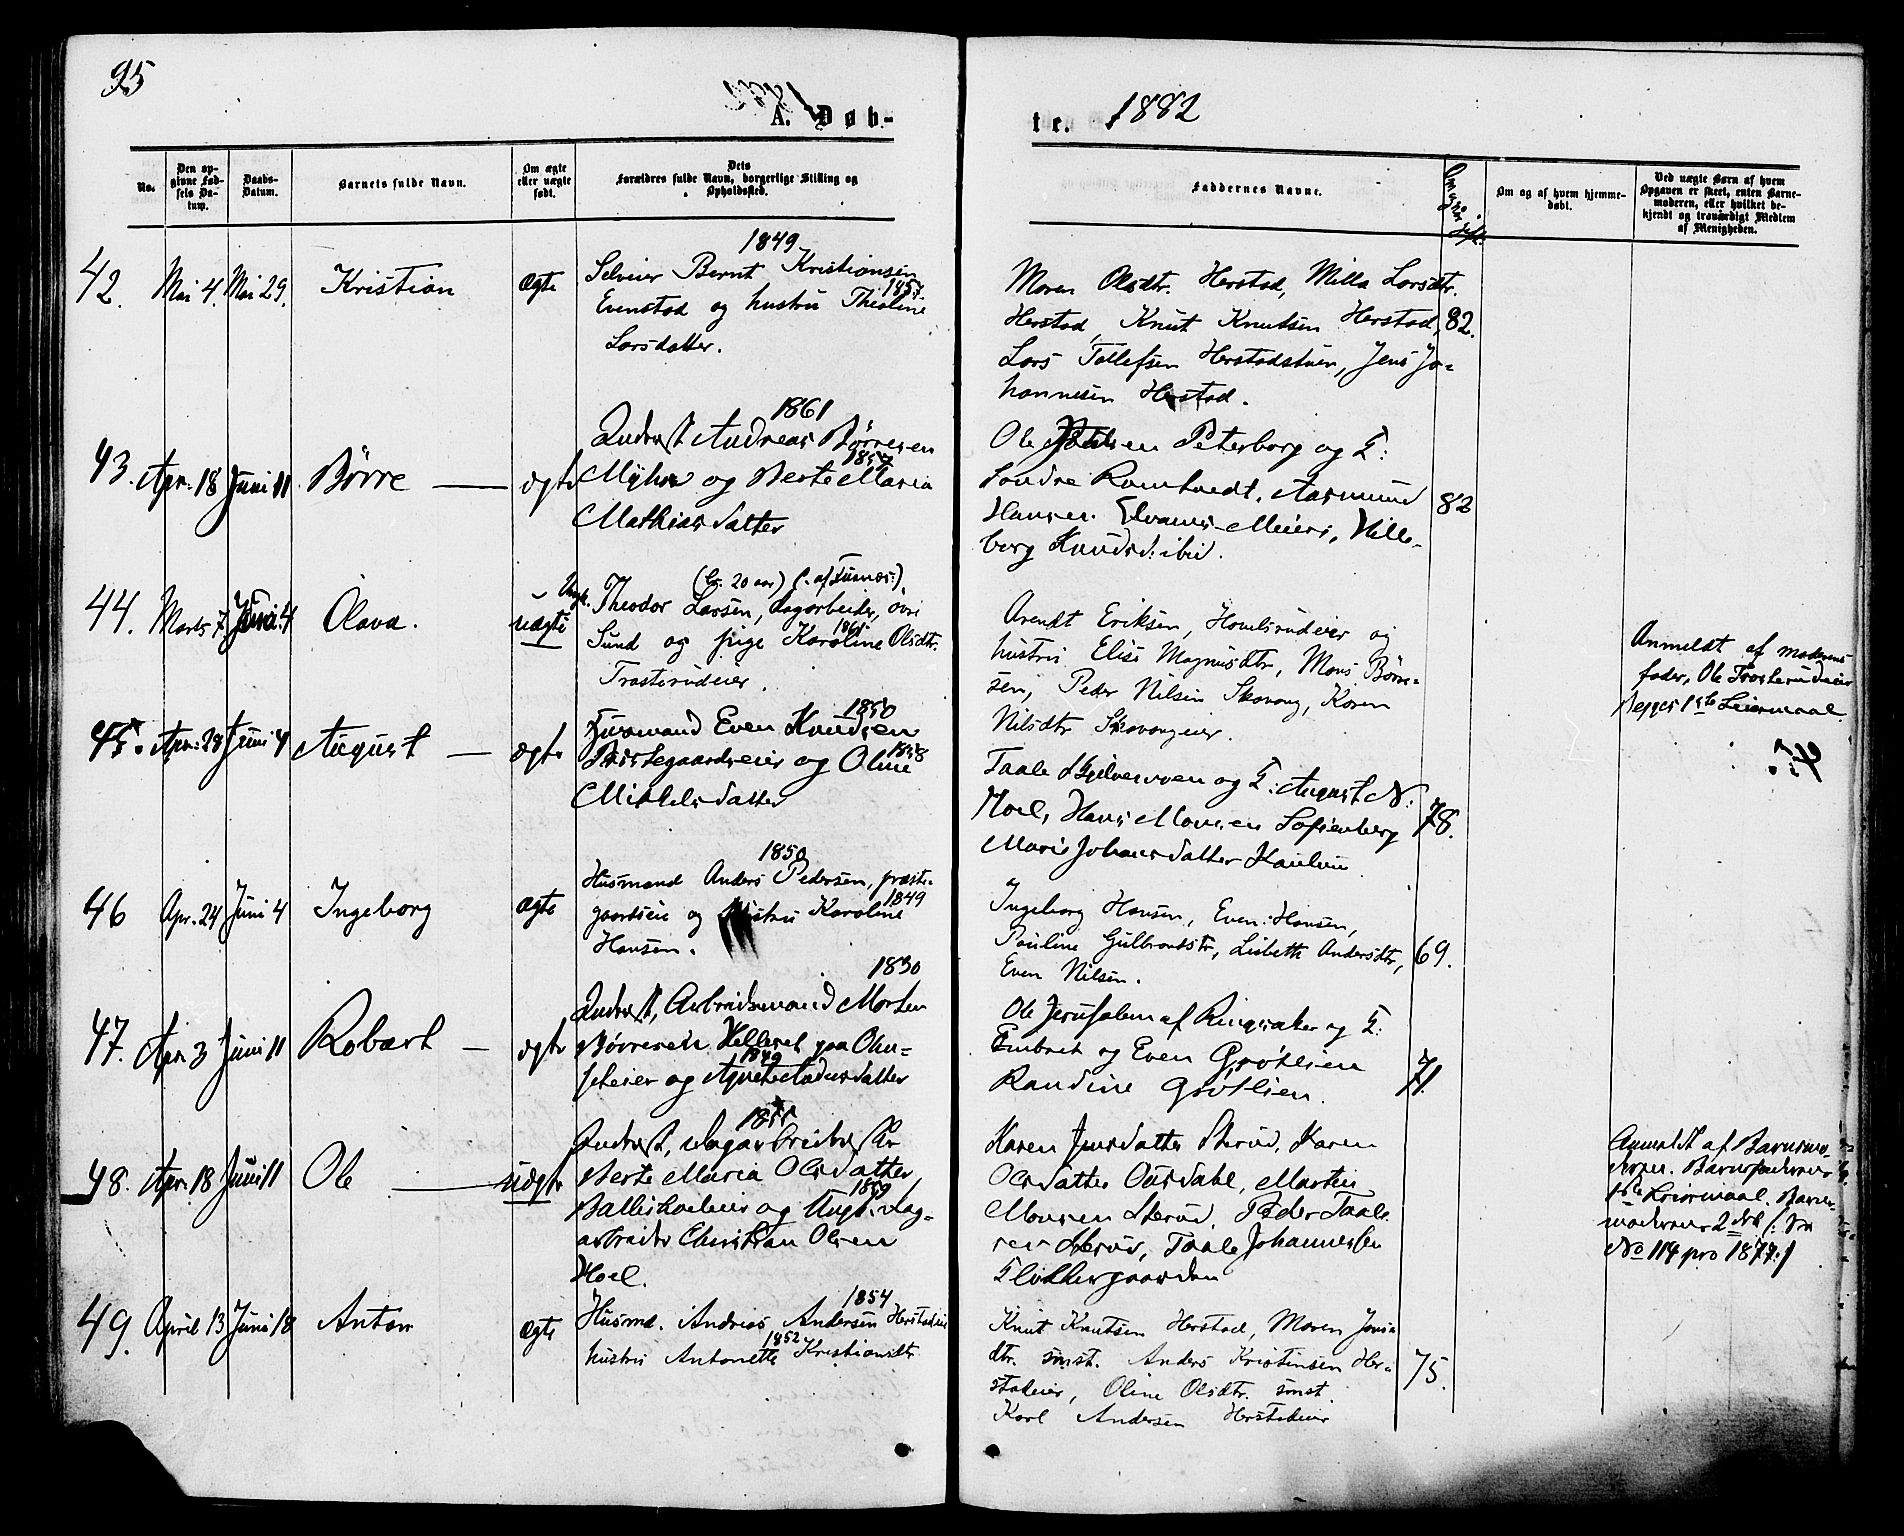 95
A. Døb-
te. 1882
No.
Den op-
givne Fød-
sels Da-
tum.
Daabs-
Datum.
Barnets fulde Navn.
Om ægte
eller uægte
født.
Dets
Forældres fulde Navn, borgerlige Stilling og
Opholdssted.
Faddernes Navne.
Om og af hvem hjemme-
døbt.
Ved uægte Børn af hvem
Opgaven er skeet, enten Barne-
moderen, eller hvilket be-
kjendt og troværdigt Medlem
af Menigheden.
42. Mai 4. Mai 29. Kristian ægte
1849
Selveier Bernt Kristiansen
1857
Evenstad og hustru Theoline
Larsdatter.
Maren Olsdtr. Herstad, Milla Larsdtr.
Herstad, Knut Knutsen Herstad, 82.
Lars Tollefsen Herstadstuen, Jens Jo-
hannesen Herstad.
43. Apr. 18 Juni 11 Børre ægte
1861
Inderst Andreas Børresen
1857
Myhre og Berte Maria
Mathiasdatter
Ole Peterborg og G:
Sondre Romtvedt, Aasmund 82
Hansen Meier, Hille-
borg Knudsd: ibid.
44. Marts 7 Juni 4 Olava. uægte
(ca. 20 aar) (: af Furnæs:)
Ungk. Theodor Larsen, dagarbeider, øvre
1861
Sund og pige Karoline Olsdtr.
Trosterudeier.
Arendt Eriksen, Hovelsrudeier og
hustru Elise Magnusdtr, Mons Børre-
sen, Peder Nilsen Skavang, Karen
Nilsdtr Skavangeier.
Anmeldt af moderens
fader, Ole Trosterudeier
begges 1ste Leiermaal.
45. Apr. 28 Juni 4 August ægte
1850
Husmand Even Knudsen
1858
Præstegaardseier og Oline
Mikkelsdatter
Taale og G: August N.
Hoel, Hans Monsen Sofienberg 78.
Marie Johansdatter
46 Apr. 24 Juni 4 Ingeborg ægte
1850
Husmand Anders Pedersen, præste-
1849
gaardseie og hustru Karoline
Hansen.
Ingeborg Hansen, Even Hansen,
Pauline Gulbrandsdtr, Lisbeth Andersdtr, 69.
Even Nilsen.
47. Apr. 3 Juni 11 Robert ægte
1830
Inderst, Arbeidsmand Morten
Børresen Helleret paa
1849
og Agnete Andersdatter
Ole Jerusalem af Ringsaker og G:
Embret og Even Grøtlien 71.
Randine Grøtlien.
48. Apr. 18 Juni 11 Ole uægte
1855
Inderst, dagarbeider
Berte Maria Olsdatter
1859
Balliskoleier og Ungk. dag-
arbeider Christian Olsen
Hoel.
Karen Jensdatter Skerud, Karen
Olsdatter Aasdahl, Martin
Monsen Skerud, Peder Taale-
sen Skerud, Taale Johannessen
Glukkergaarden
Anmeldt af Barnemo-
deren. Barnefaderens
1ste Leiermaal. Barne-
moderens 2det (: se
No 114 pro 1877:)
49. April 13 Juni 18 Anton ægte
1854
Husmd. Andreas Andersen Herstadeie
1852
hustru Antonette Kristiansdtr
Knut Knutsen Herstad, Maren Jens-
dtr. smst. Anders Kristensen Her- 75.
stadeier, Oline Olsdtr. smst.
Karl Andersen Herstadeier